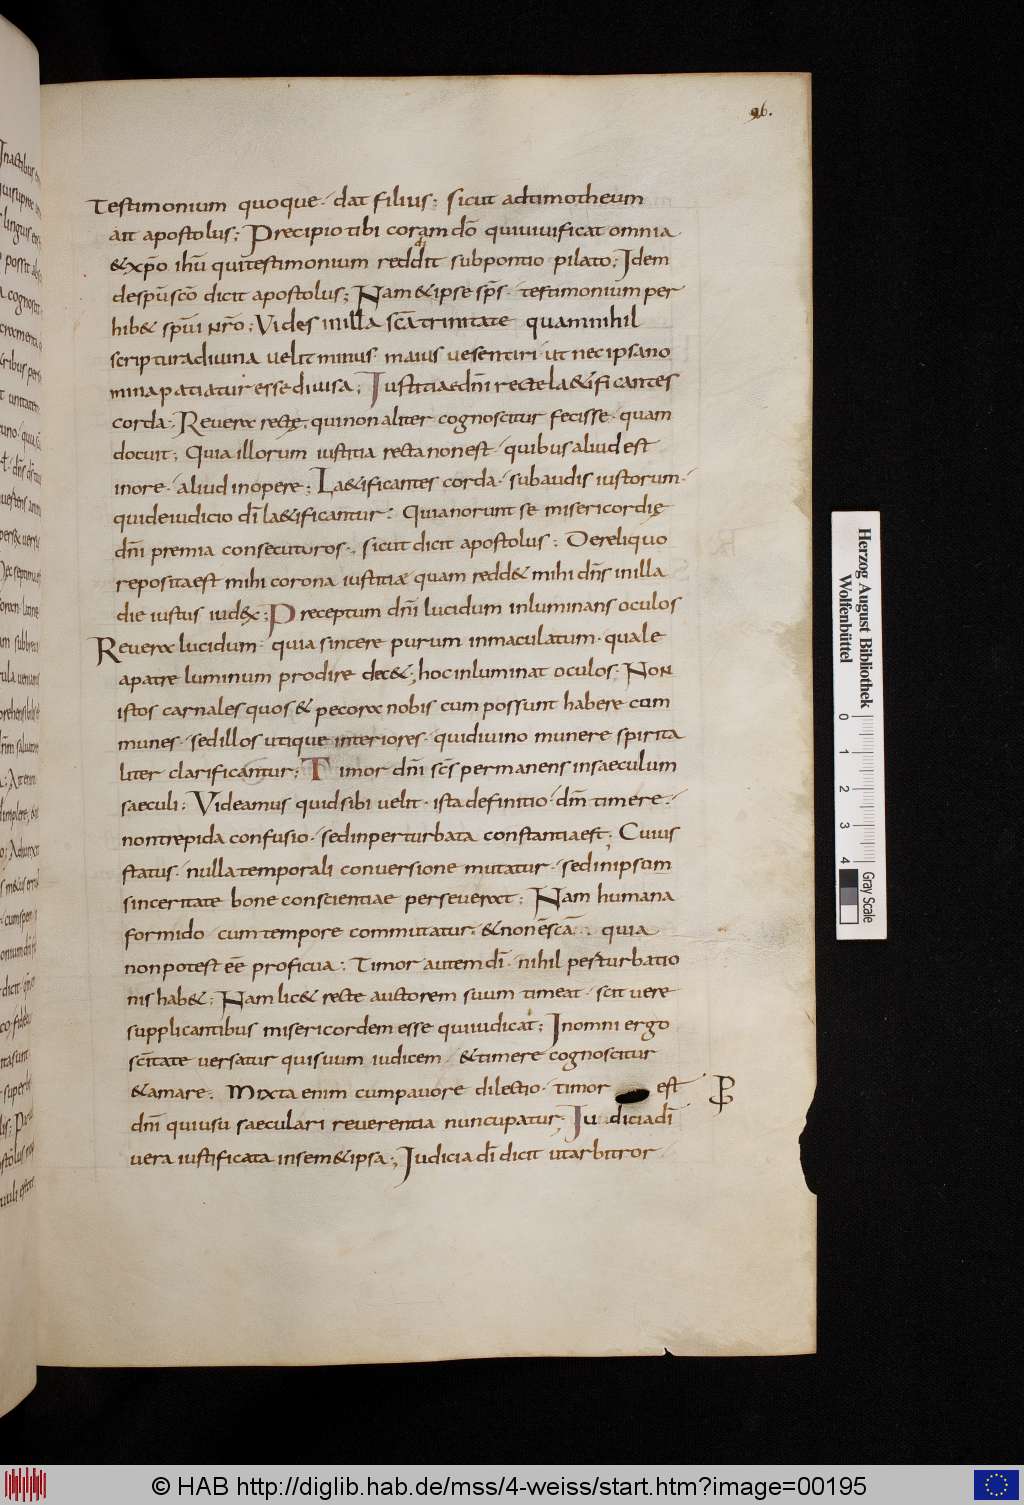 96.
Testimonium quoque · dat filius ; sicut adtimotheum
ait apostolus ; Precipio tibi coram dō qui uiuificat omnia ·
& xp̄o ihū qui testimonium reddit sub pontio pilato ; Idem
de spū scō dicit apostolus ; Nam & ipse sp̄s · testimonium per
hib& spūi nr̄o ; Vides in illa scā trinitate quam nihil
scriptura diuina uelit minus · maius ue sentiri · ut nec ipsa no
mina patiatur esse diuisa ; Iustitiae dn̄i recte la&ificantes
corda ; Reuera recte, qui non aliter cognoscitur fecisse · quam
docuit ; Quia illorum iustitia recta non est · quibus aliud est
in ore · aliud in opere ; La&ificantes corda · subaudis iustorum ·
qui de iudicio dī la&ificantur : Quia norunt se misericordię
dn̄i premia consecuturos · sicut dicit apostolus ; De reliquo
reposita est mihi corona iustitiae quam redd& mihi dn̄s in illa
die iustus iudex ; Preceptum dn̄i lucidum inluminans oculos
Reuera lucidum · quia sincere purum inmaculatum · quale
a patre luminum prodire dec& ; hoc inluminat oculos ; Non
istos carnales quos & pecora nobis cum possunt habere com
munes · sed illos utique interiores · qui diuino munere spirita
liter clarificantur ; Timor dn̄i scs permanens in saeculum
saeculi ; Videamus quid sibi uelit · ista definitio · dn̄m timere ·
non trepida confusio · sed inperturbata constantia est ; Cuius
status · nulla temporali conuersione mutatur · sed in ipsum
sinceritate bone conscientiae perseuerat ; Nam humana
formido cum tempore commutatur · & non ē scā · quia
non potest eē proficua ; Timor autem dī · nihil perturbatio
nis hab& ; Nam lic& recte auctorem suum timeat · scit uere
supplicantibus misericordem esse qui iudicat ; In omni ergo
scītate uersatur qui suum iudicem · & timere cognoscitur
& amare ; Mixta enim cum pauore dilectio · timor est
dn̄i qui usu saeculari reuerentia nuncupatur ; Iudicia dī
uera iustificata in sem&ipsa ; Iudicia dī dicit ut arbitror
Herzog August Bibliothek
Wolfenbüttel
0 1 2 3 4
Gray Scale
© HAB http://diglib.hab.de/mss/4-weiss/start.htm?image=00195